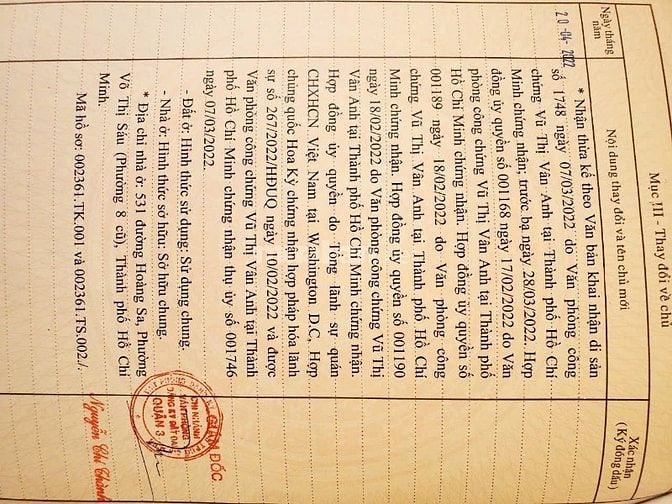 Mục III - Thay đổi về chủ
Ngày tháng năm
Nội dung thay đổi và tên chủ mới
Xác nhận
(Ký đóng dấu)
20-04-2022
* Nhận thừa kế theo Văn bản khai nhận di sản
số 1748 ngày 07/03/2022 do Văn phòng công
chứng Vũ Thị Vân Anh tại Thành phố Hồ Chí
Minh chứng nhận; trước bạ ngày 28/03/2022. Hợp
đồng ủy quyền số 001168 ngày 17/02/2022 do Văn
phòng công chứng Vũ Thị Vân Anh tại Thành phố
Hồ Chí Minh chứng nhận. Hợp đồng ủy quyền số
001189 ngày 18/02/2022 do Văn phòng công
chứng Vũ Thị Vân Anh tại Thành phố Hồ Chí
Minh chứng nhận. Hợp đồng ủy quyền số 001190
ngày 18/02/2022 do Văn phòng công chứng Vũ Thị
Vân Anh tại Thành phố Hồ Chí Minh chứng nhận.
Hợp đồng ủy quyền do Tổng lãnh sự quán
CHXHCN Việt Nam tại Washington, D.C, Hợp
chủng quốc Hoa Kỳ chứng nhận hợp pháp hóa lãnh
sự số 267/2022/HĐUQ ngày 10/02/2022 và được
Văn phòng công chứng Vũ Thị Vân Anh tại Thành
phố Hồ Chí Minh chứng nhận thụ ủy số 001746
ngày 07/03/2022.
- Đất ở: Hình thức sử dụng: Sử dụng chung.
- Nhà ở: Hình thức sở hữu: Sở hữu chung.
* Địa chỉ nhà ở: 531 đường Hoàng Sa, Phường
Võ Thị Sáu (Phường 8 cũ), Thành phố Hồ Chí
Minh.
Mã hồ sơ: 002361.TK.001 và 002361.TS.002./.
GIÁM ĐỐC
CHI NHÁNH
VĂN PHÒNG
ĐĂNG KÝ ĐẤT ĐAI
QUẬN 3
Nguyễn Chí Thành